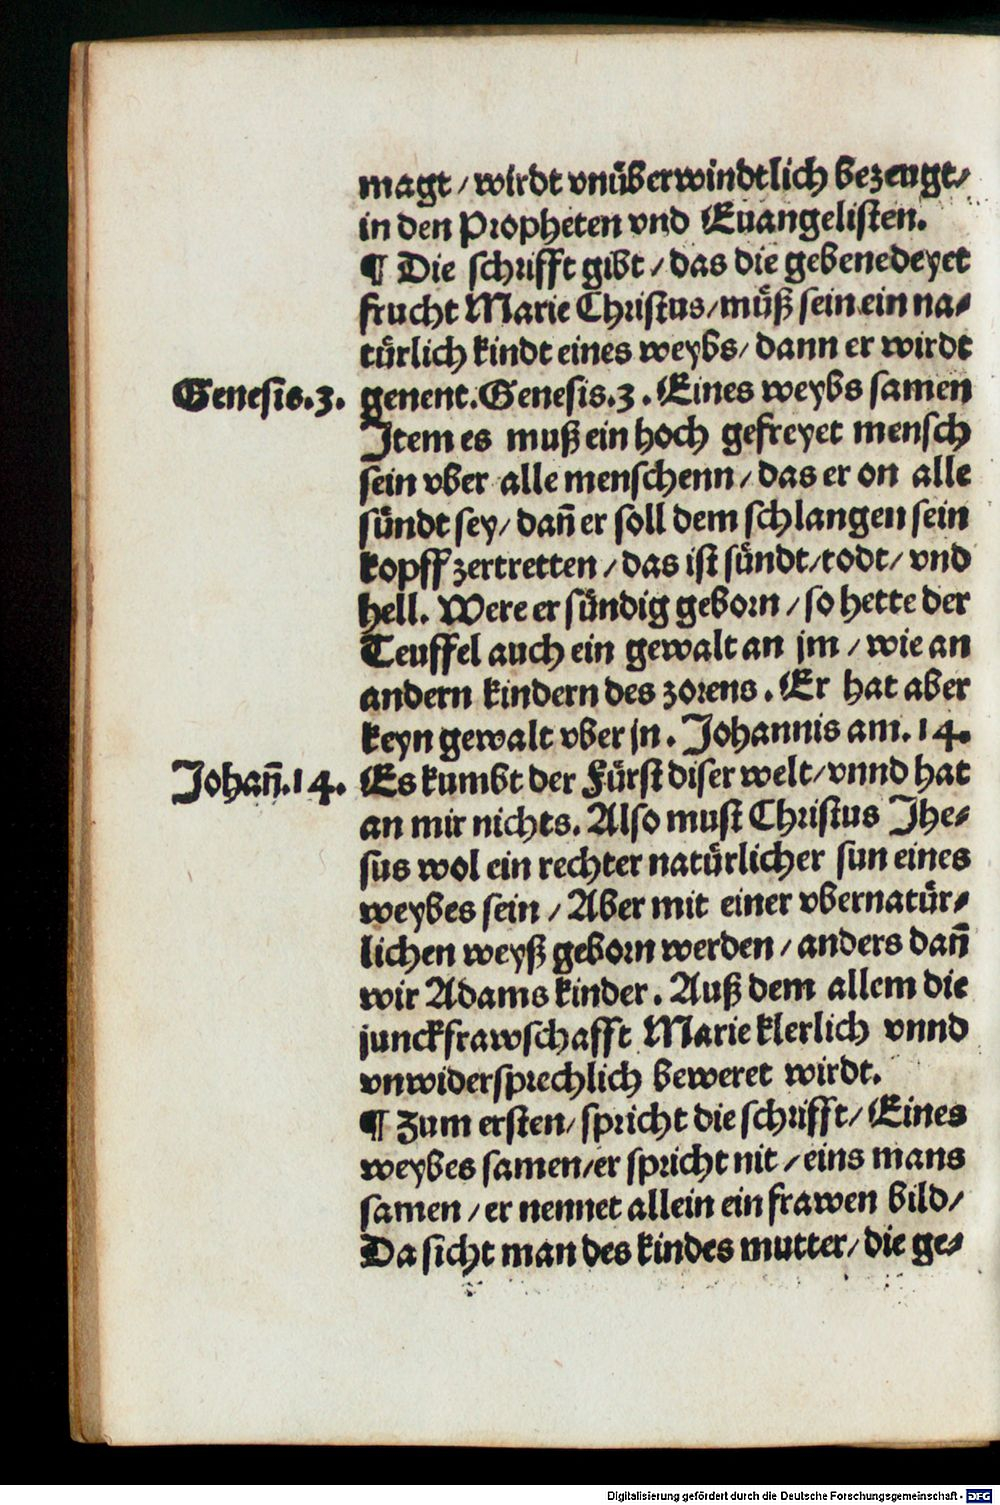 magt / wirdt vnüberwindtlich bezeugt /
in den Propheten vnd Euangelisten.
¶ Die schrifft gibt / das die gebenedeyet
frucht Marie Christus / müß sein ein na⸗
türlich kindt eines weybs / dann er wirdt
Genesis.3. genent. Genesis.3. Eines weybs samen
Item es muß ein hoch gefreyet mensch
sein vber alle menschenn / das er on alle
sündt sey / dañ er soll dem schlangen sein
kopff zertretten / das ist sündt / todt / vnd
hell. Were er sündig geborn / so hette der
Teuffel auch ein gewalt an jm / wie an
andern kindern des zorens. Er hat aber
keyn gewalt vber jn. Johannis am.14.
Johañ.14. Es kumbt der Fürst diser welt / vnnd hat
an mir nichts. Also must Christus Jhe⸗
sus wol ein rechter natürlicher sun eines
weybes sein / Aber mit einer vbernatür⸗
lichen weyß geborn werden / anders dañ
wir Adams kinder. Auß dem allem die
junckfrawschafft Marie klerlich vnnd
vnwidersprechlich beweret wirdt.
¶ Zum ersten / spricht die schrifft / Eines
weybes samen / er spricht nit / eins mans
samen / er nennet allein ein frawen bild /
Da sicht man des kindes mutter / die ge⸗
Digitalisierung gefördert durch die Deutsche Forschungsgemeinschaft - DFG